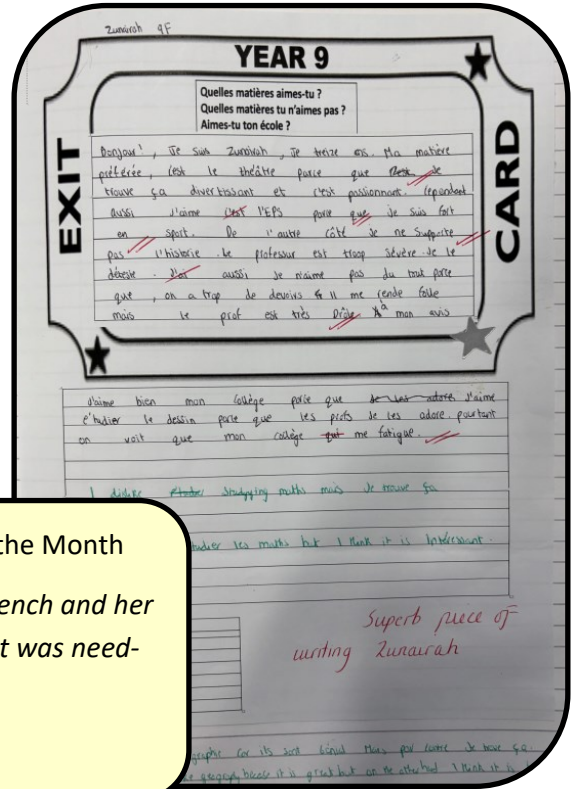 Zunairah 9F
YEAR 9
EXIT
CARD
Quelles matières aimes-tu ?
Quelles matières tu n'aimes pas ?
Aimes-tu ton école ?
Bonjour!, Je suis Zunairah, Je treize ans. Ma matière
préférée, c'est le théâtre parce que Je
trouve ça divertissant et c'est passionnant. Cependant
aussi J'aime c'est l'EPS parce que Je suis fort
en sport. De l'autre côté Je ne Supporte
pas l'historie. Le professur est troop sévère. Je le
déteste. aussi Je n'aime pas du tout parce
que, on a trop de devoirs & Il me rende folle
mais le prof est très Drôle à mon avis
J'aime bien mon collège parce que Je les adore J'aime
étudier le dessin parce que les profs Je les adore. pourtant
on voit que mon collège qui me fatigue.
I dislike étudier studying maths mais Je trouve ça
udier les maths but I think it is Intéressant.
Superb piece of
writing Zunairah
the Month
ench and her
t was need-
graphie car its sont Génial Mais par contre Je trouve ça
geography because it is great but on the other hand I think it is